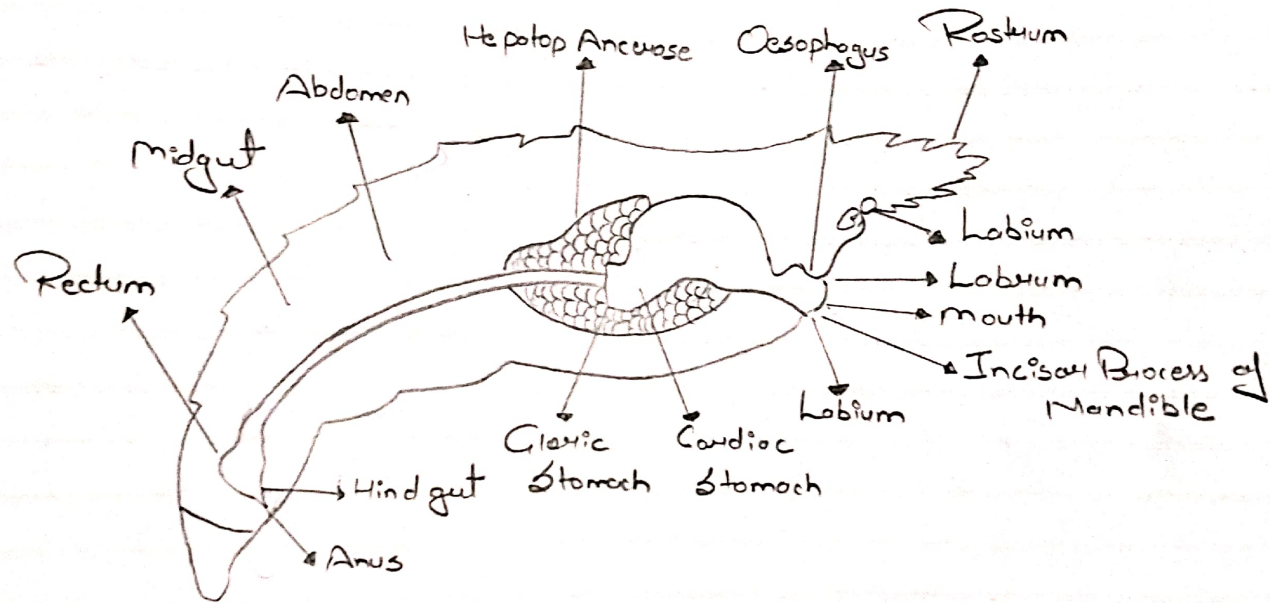 Hepatop Ancrease
Oesophagus
Rostrum
Abdomen
Midgut
Rectum
Labium
Labrum
Mouth
Incisor Process of
Mandible
Labium
Cardiac
Stomach
Stomach
Hind gut
Anus